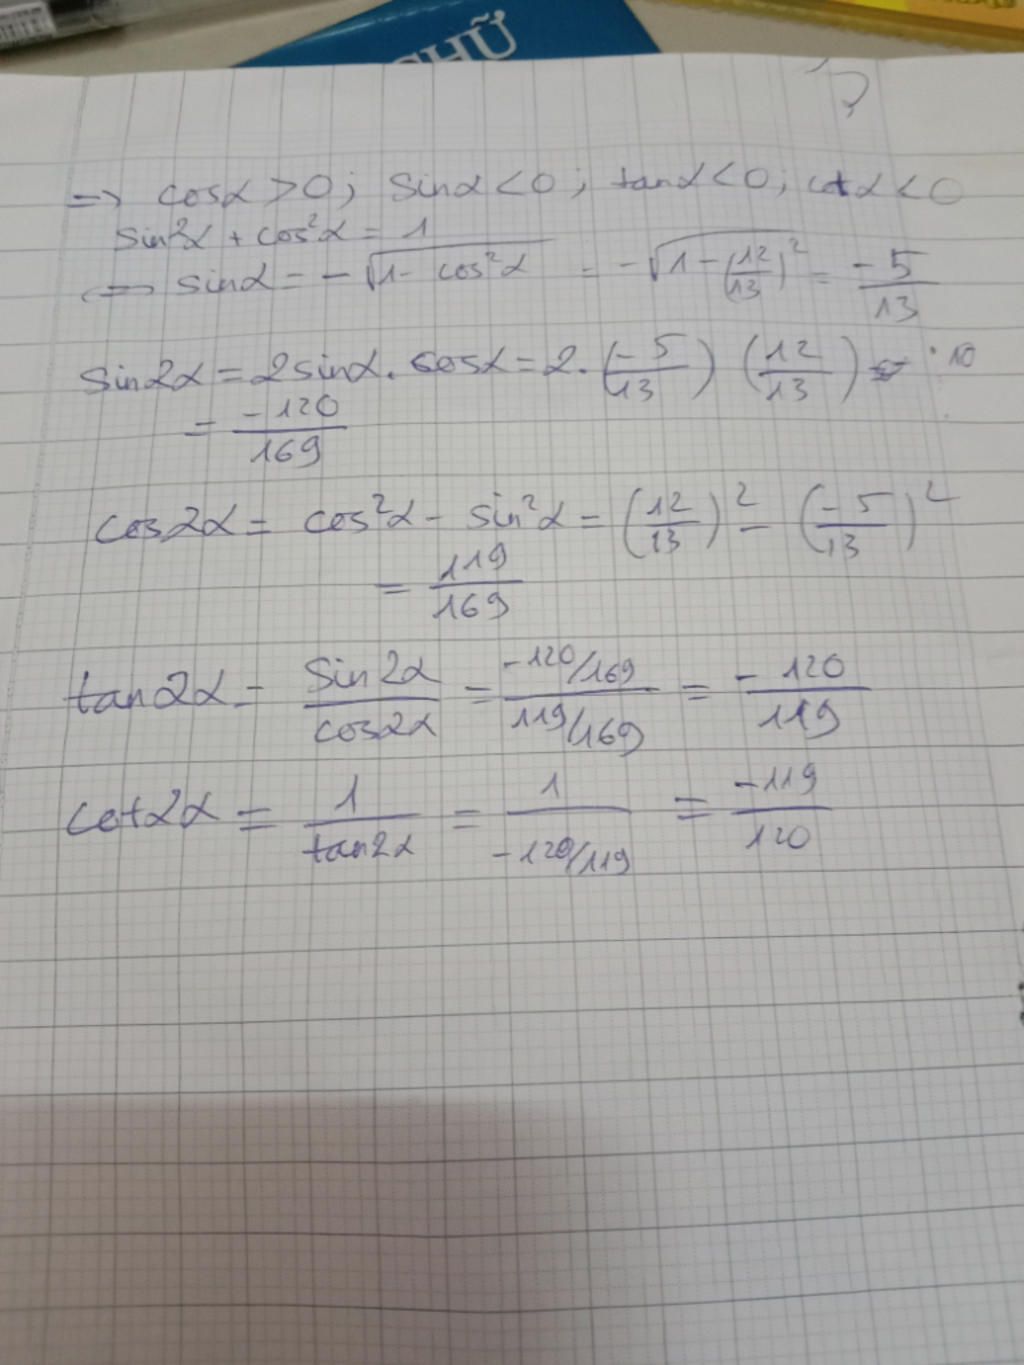 CHỮ
=> cosα > 0; sinα < 0; tanα < 0; cotα < 0
sin²α + cos²α = 1
<=> sinα = -√(1 - cos²α) = -√(1 - (12/13)²) = -5/13
sin2α = 2sinα . cosα = 2. (-5/13) (12/13)
= -120/169
cos2α = cos²α - sin²α = (12/13)² - (-5/13)²
= 119/169
tan2α = sin2α/cos2α = (-120/169)/(119/169) = -120/119
cot2α = 1/tan2α = 1/(-120/119) = -119/120